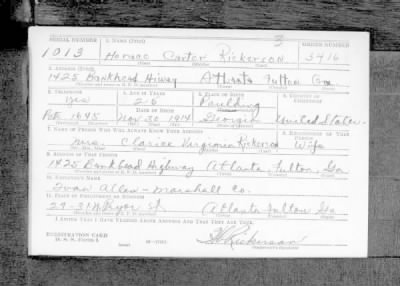 SERIAL NUMBER 1. NAME (Print) ORDER NUMBER
1013 Horace Carter Rickerson 3416
3
2. ADDRESS (Print)
1425 Bankhead Hiway Atlanta Fulton Ga
3. TELEPHONE 4. AGE IN YEARS 5. PLACE OF BIRTH 6. COUNTRY OF CITIZENSHIP
yes 26 Paulding
DATE OF BIRTH
1645 Nov 30 1914 Georgia United States
7. NAME OF PERSON WHO WILL ALWAYS KNOW YOUR ADDRESS 8. RELATIONSHIP OF THAT PERSON
Mrs. Clarice Virginia Rickerson Wife
9. ADDRESS OF THAT PERSON
1425 Bankhead Highway Atlanta, Fulton, Ga
10. EMPLOYER'S NAME
Ivan Allen-Marshall Co.
11. PLACE OF EMPLOYMENT OR BUSINESS
29-31 Pryor St Atlanta Fulton Ga
I AFFIRM THAT I HAVE VERIFIED ABOVE ANSWERS AND THAT THEY ARE TRUE.
REGISTRATION CARD
D. S. S. Form 1
Rickerson